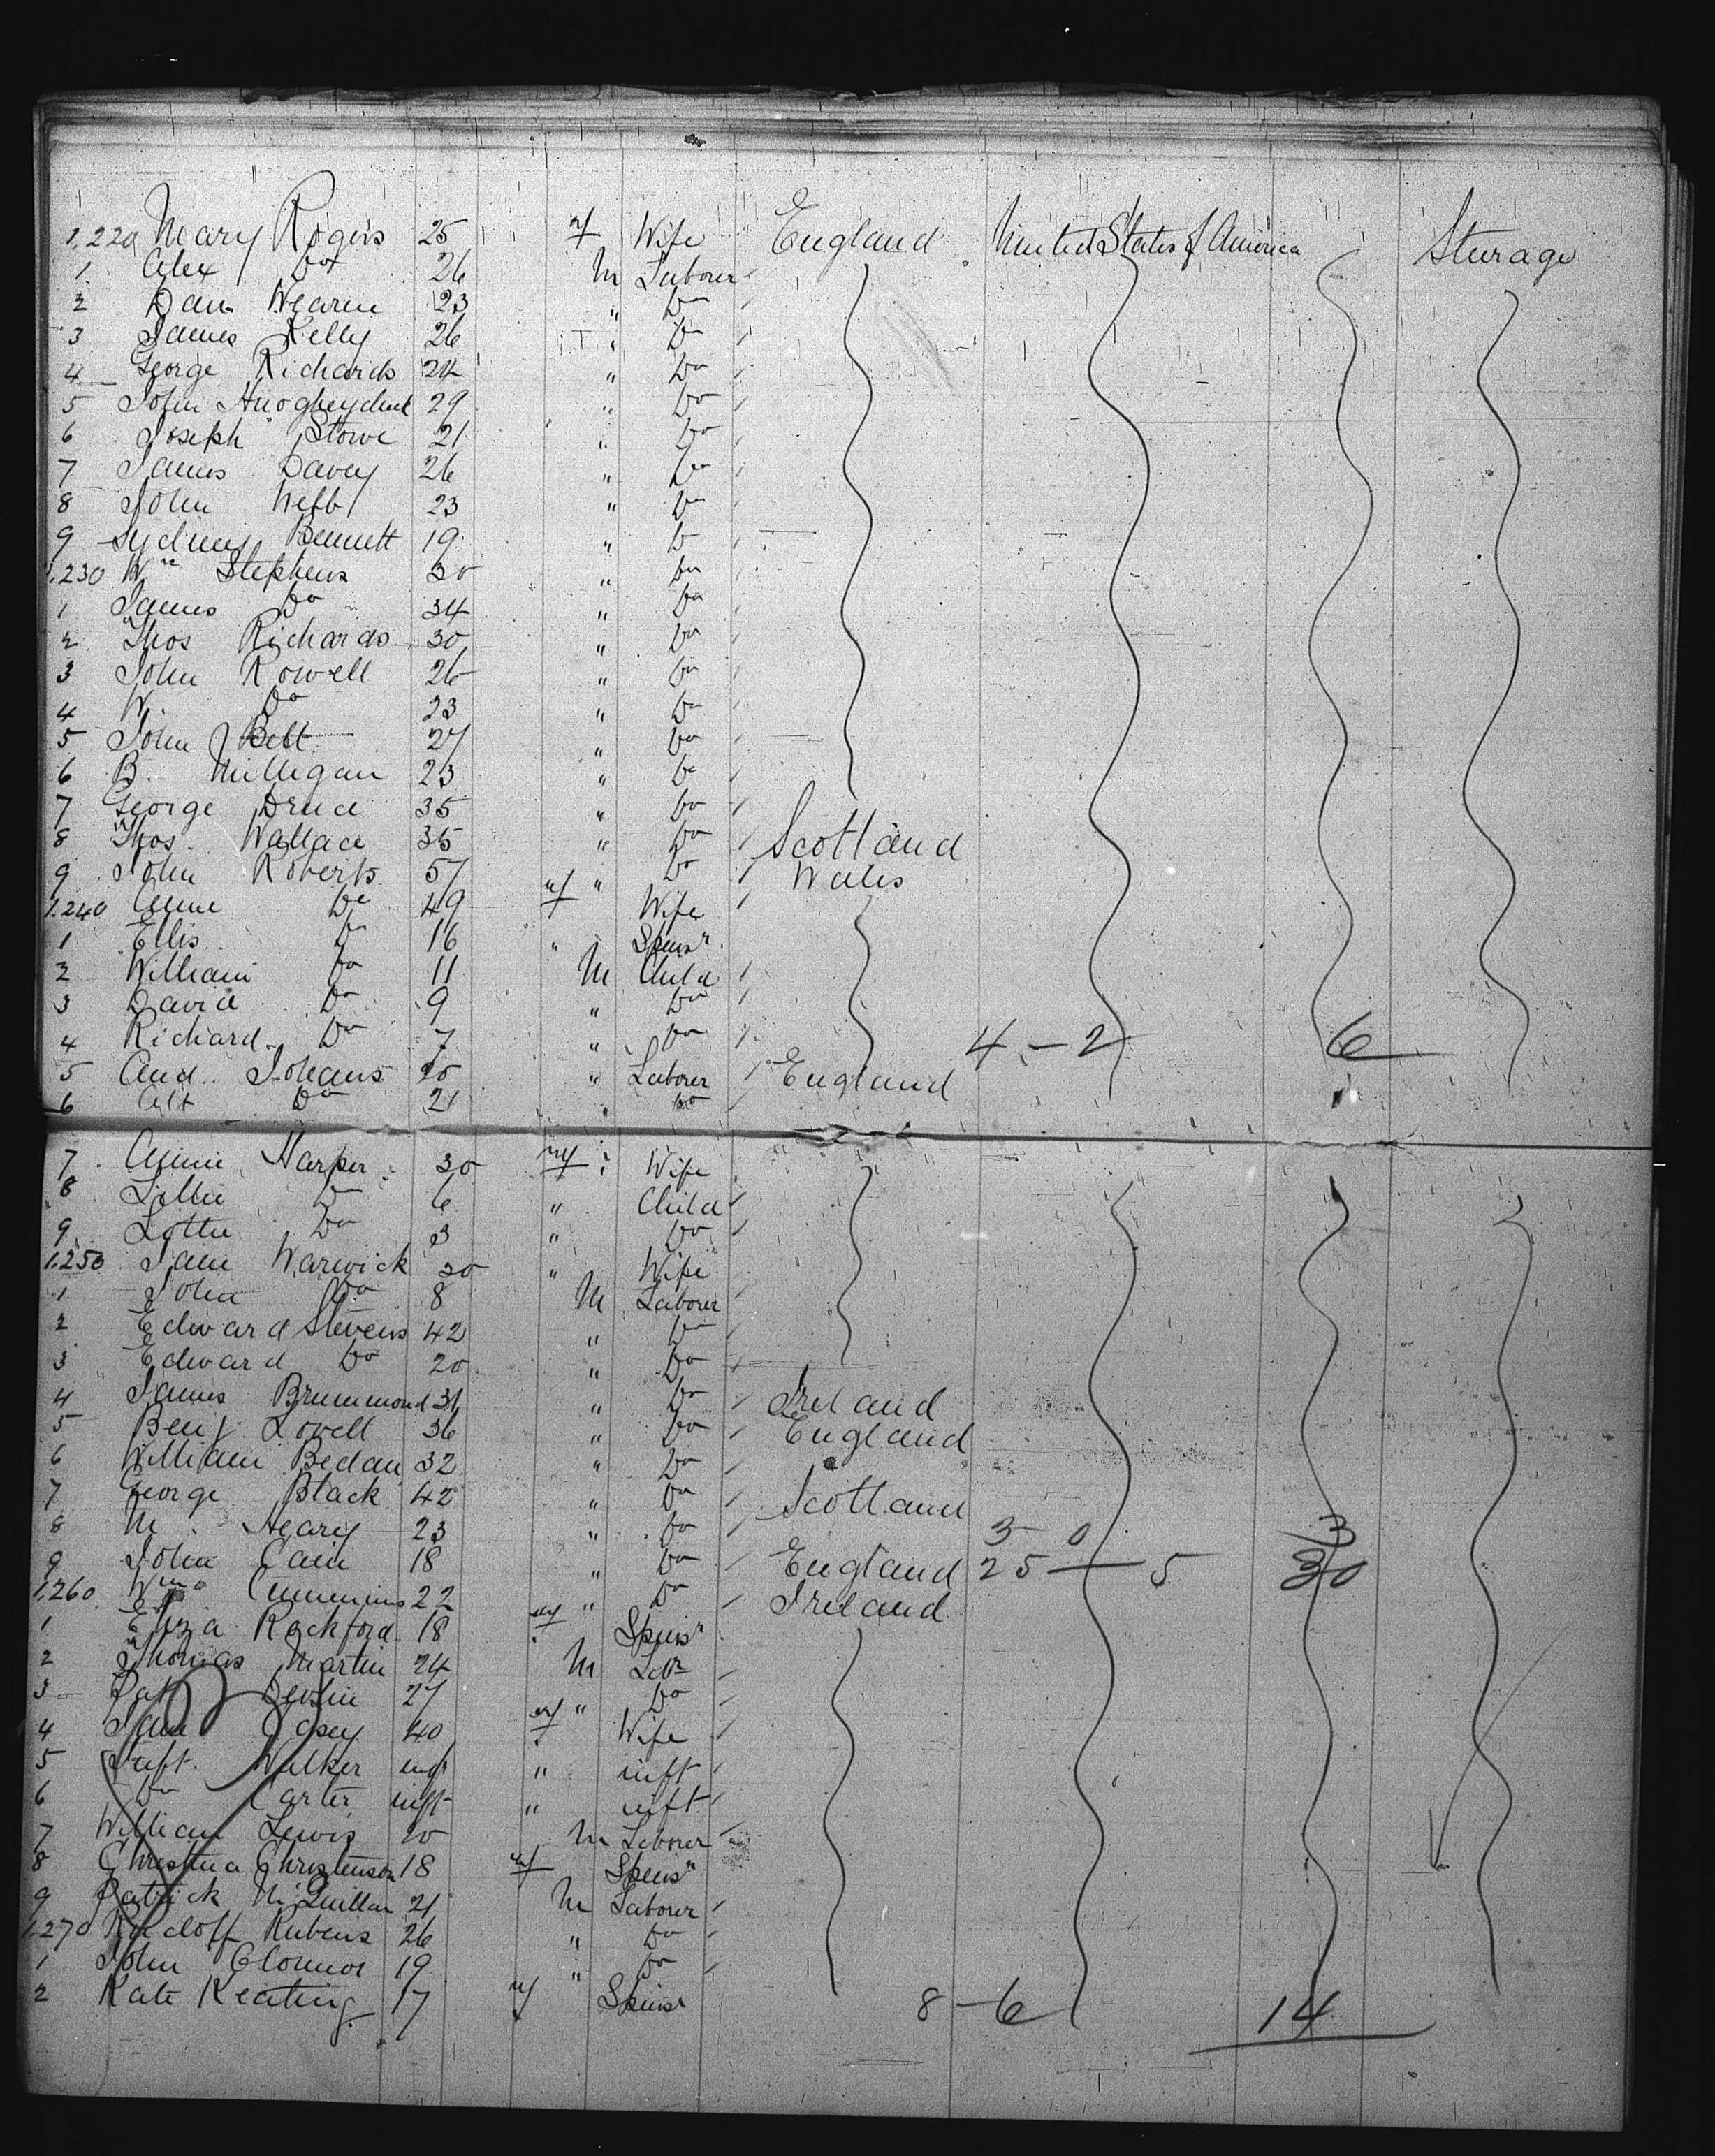 1,220 Mary Rogers 25 f Wife England United States of America Steerage
1 Alex Do 26 M Laborer
2 Dan Wearne 23 " Do
3 James Kelly 26 " Do
4 George Richards 24 " Do
5 John 29 " Do
6 Joseph Stowe 21 " Do
7 James Davey 26 " Do
8 John Webb 23 " Do
9 Sydney Bennett 19 " Do
1,230 Wm Stephens 30 " Do
1 James Do 34 " Do
2 Thos Richards 30 " Do
3 John Rowell 26 " Do
4 W. Do 23 " Do
5 John Bett 27 " Do
6 B. Milligan 23 " Do
7 George Druce 35 " Do
8 Thos. Wallace 35 " Do Scotland
9 John Roberts 57 " Do Wales
1,240 Anne Do 49 f Wife
1 Ellis Do 16 " Spinsr
2 William Do 11 M Child
3 David Do 9 " Do
4 Richard Do 7 " Do 4 - 2 6
5 And. Johans 20 " Laborer England
6 Alf Do 21 " Do
7 Annie Harper 30 f Wife
8 Lillie Do 6 " Child
9 Lottie Do 3 " Do
1,250 Jane Warwick 30 " Wife
1 John Do 8 M Laborer
2 Edward Stevens 42 " Do
3 Edward Do 20 " Do
4 James Brummond 31 " Do Ireland
5 Benj Lovell 36 " Do England
6 William Bedau 32 " Do
7 George Black 42 " Do Scotland
8 M. Heary 23 " Do 3 0 3
9 John Cain 18 " Do England 25 - 5 30
1,260 Wm Cummins 22 " Do Ireland
1 Eliza Rockford 18 f Spinsr
2 Thomas Martin 24 M Labr
3 Pat Devlin 27 " Do
4 Jane Casey 40 f Wife
5 Inft. Walker inft " inft
6 Do Carter inft " inft
7 William Lewis 20 M Laborer
8 Christina Christensen 18 f Spinsr
9 Patrick McQuillan 21 M Laborer
1,270 Rudolf Rubens 26 " Do
1 John OConnor 19 " Do
2 Kate Keating 17 f Spinsr 8 - 6 14